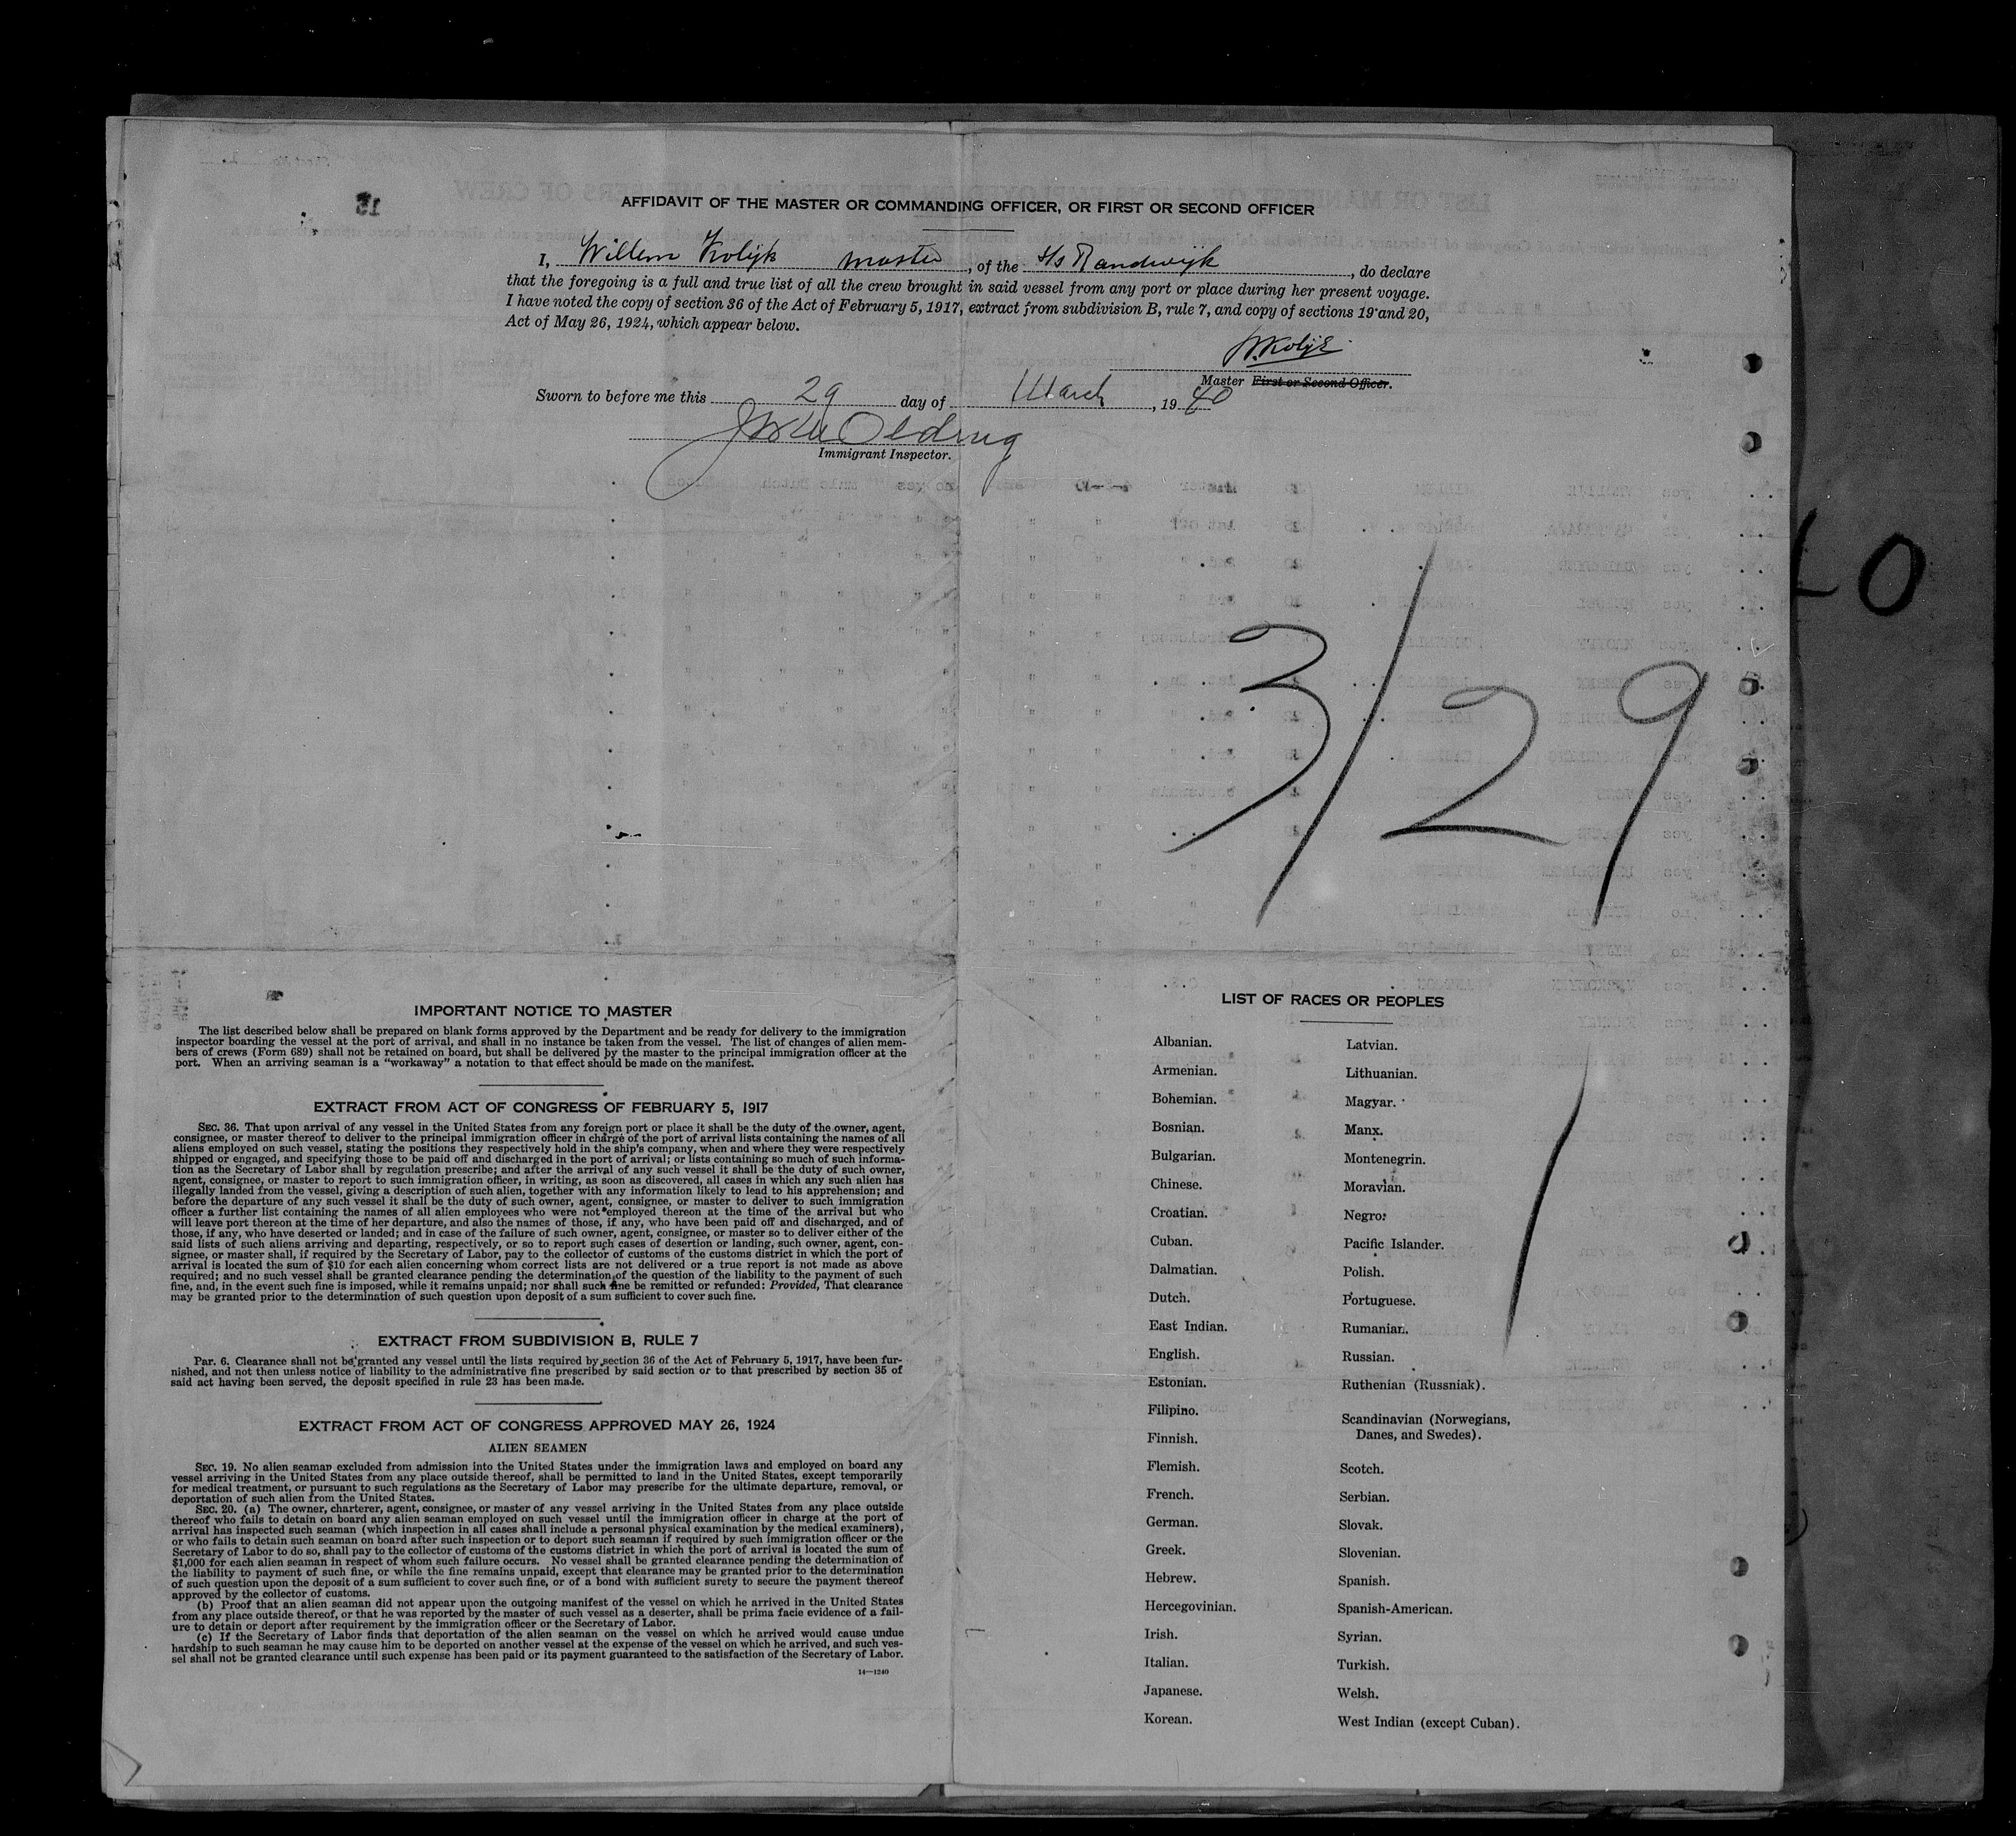 AFFIDAVIT OF THE MASTER OR COMMANDING OFFICER, OR FIRST OR SECOND OFFICER
I, Willem Kolijk master, of the S/s Randwijk, do declare
that the foregoing is a full and true list of all the crew brought in said vessel from any port or place during her present voyage.
I have noted the copy of section 36 of the Act of February 5, 1917, extract from subdivision B, rule 7, and copy of sections 19 and 20,
Act of May 26, 1924, which appear below.
W. Kolijk
Master First or Second Officer.
Sworn to before me this 29 day of March, 1940
Immigrant Inspector.
3/29
IMPORTANT NOTICE TO MASTER
The list described below shall be prepared on blank forms approved by the Department and be ready for delivery to the immigration
inspector boarding the vessel at the port of arrival, and shall in no instance be taken from the vessel. The list of changes of alien mem-
bers of crews (Form 689) shall not be retained on board, but shall be delivered by the master to the principal immigration officer at the
port. When an arriving seaman is a "workaway" a notation to that effect should be made on the manifest.
EXTRACT FROM ACT OF CONGRESS OF FEBRUARY 5, 1917
SEC. 36. That upon arrival of any vessel in the United States from any foreign port or place it shall be the duty of the owner, agent,
consignee, or master thereof to deliver to the principal immigration officer in charge of the port of arrival lists containing the names of all
aliens employed on such vessel, stating the positions they respectively hold in the ship's company, when and where they were respectively
shipped or engaged, and specifying those to be paid off and discharged in the port of arrival; or lists containing so much of such informa-
tion as the Secretary of Labor shall by regulation prescribe; and after the arrival of any such vessel it shall be the duty of such owner,
agent, consignee, or master to report to such immigration officer, in writing, as soon as discovered, all cases in which any such alien has
illegally landed from the vessel, giving a description of such alien, together with any information likely to lead to his apprehension; and
before the departure of any such vessel it shall be the duty of such owner, agent, consignee, or master to deliver to such immigration
officer a further list containing the names of all alien employees who were not employed thereon at the time of the arrival but who
will leave port thereon at the time of her departure, and also the names of those, if any, who have been paid off and discharged, and of
those, if any, who have deserted or landed; and in case of the failure of such owner, agent, consignee, or master so to deliver either of the
said lists of such aliens arriving and departing, respectively, or so to report such cases of desertion or landing, such owner, agent, con-
signee, or master shall, if required by the Secretary of Labor, pay to the collector of customs of the customs district in which the port of
arrival is located the sum of $10 for each alien concerning whom correct lists are not delivered or a true report is not made as above
required; and no such vessel shall be granted clearance pending the determination of the question of the liability to the payment of such
fine, and, in the event such fine is imposed, while it remains unpaid; nor shall such fine be remitted or refunded: Provided, That clearance
may be granted prior to the determination of such question upon deposit of a sum sufficient to cover such fine.
EXTRACT FROM SUBDIVISION B, RULE 7
Par. 6. Clearance shall not be granted any vessel until the lists required by section 36 of the Act of February 5, 1917, have been fur-
nished, and not then unless notice of liability to the administrative fine prescribed by said section or to that prescribed by section 35 of
said act having been served, the deposit specified in rule 23 has been made.
EXTRACT FROM ACT OF CONGRESS APPROVED MAY 26, 1924
ALIEN SEAMEN
SEC. 19. No alien seaman excluded from admission into the United States under the immigration laws and employed on board any
vessel arriving in the United States from any place outside thereof, shall be permitted to land in the United States, except temporarily
for medical treatment, or pursuant to such regulations as the Secretary of Labor may prescribe for the ultimate departure, removal, or
deportation of such alien from the United States.
SEC. 20. (a) The owner, charterer, agent, consignee, or master of any vessel arriving in the United States from any place outside
thereof who fails to detain on board any alien seaman employed on such vessel until the immigration officer in charge at the port of
arrival has inspected such seaman (which inspection in all cases shall include a personal physical examination by the medical examiners),
or who fails to detain such seaman on board after such inspection or to deport such seaman if required by such immigration officer or the
Secretary of Labor to do so, shall pay to the collector of customs of the customs district in which the port of arrival is located the sum of
$1,000 for each alien seaman in respect of whom such failure occurs. No vessel shall be granted clearance pending the determination of
the liability to payment of such fine, or while the fine remains unpaid, except that clearance may be granted prior to the determination
of such question upon the deposit of a sum sufficient to cover such fine, or of a bond with sufficient surety to secure the payment thereof
approved by the collector of customs.
(b) Proof that an alien seaman did not appear upon the outgoing manifest of the vessel on which he arrived in the United States
from any place outside thereof, or that he was reported by the master of such vessel as a deserter, shall be prima facie evidence of a fail-
ure to detain or deport after requirement by the immigration officer or the Secretary of Labor.
(c) If the Secretary of Labor finds that deportation of the alien seaman on the vessel on which he arrived would cause undue
hardship to such seaman he may cause him to be deported on another vessel at the expense of the vessel on which he arrived, and such ves-
sel shall not be granted clearance until such expense has been paid or its payment guaranteed to the satisfaction of the Secretary of Labor.
14—1240
LIST OF RACES OR PEOPLES
Albanian.
Armenian.
Bohemian.
Bosnian.
Bulgarian.
Chinese.
Croatian.
Cuban.
Dalmatian.
Dutch.
East Indian.
English.
Estonian.
Filipino.
Finnish.
Flemish.
French.
German.
Greek.
Hebrew.
Hercegovinian.
Irish.
Italian.
Japanese.
Korean.
Latvian.
Lithuanian.
Magyar.
Manx.
Montenegrin.
Moravian.
Negro.
Pacific Islander.
Polish.
Portuguese.
Rumanian.
Russian.
Ruthenian (Russniak).
Scandinavian (Norwegians,
Danes, and Swedes).
Scotch.
Serbian.
Slovak.
Slovenian.
Spanish.
Spanish-American.
Syrian.
Turkish.
Welsh.
West Indian (except Cuban).